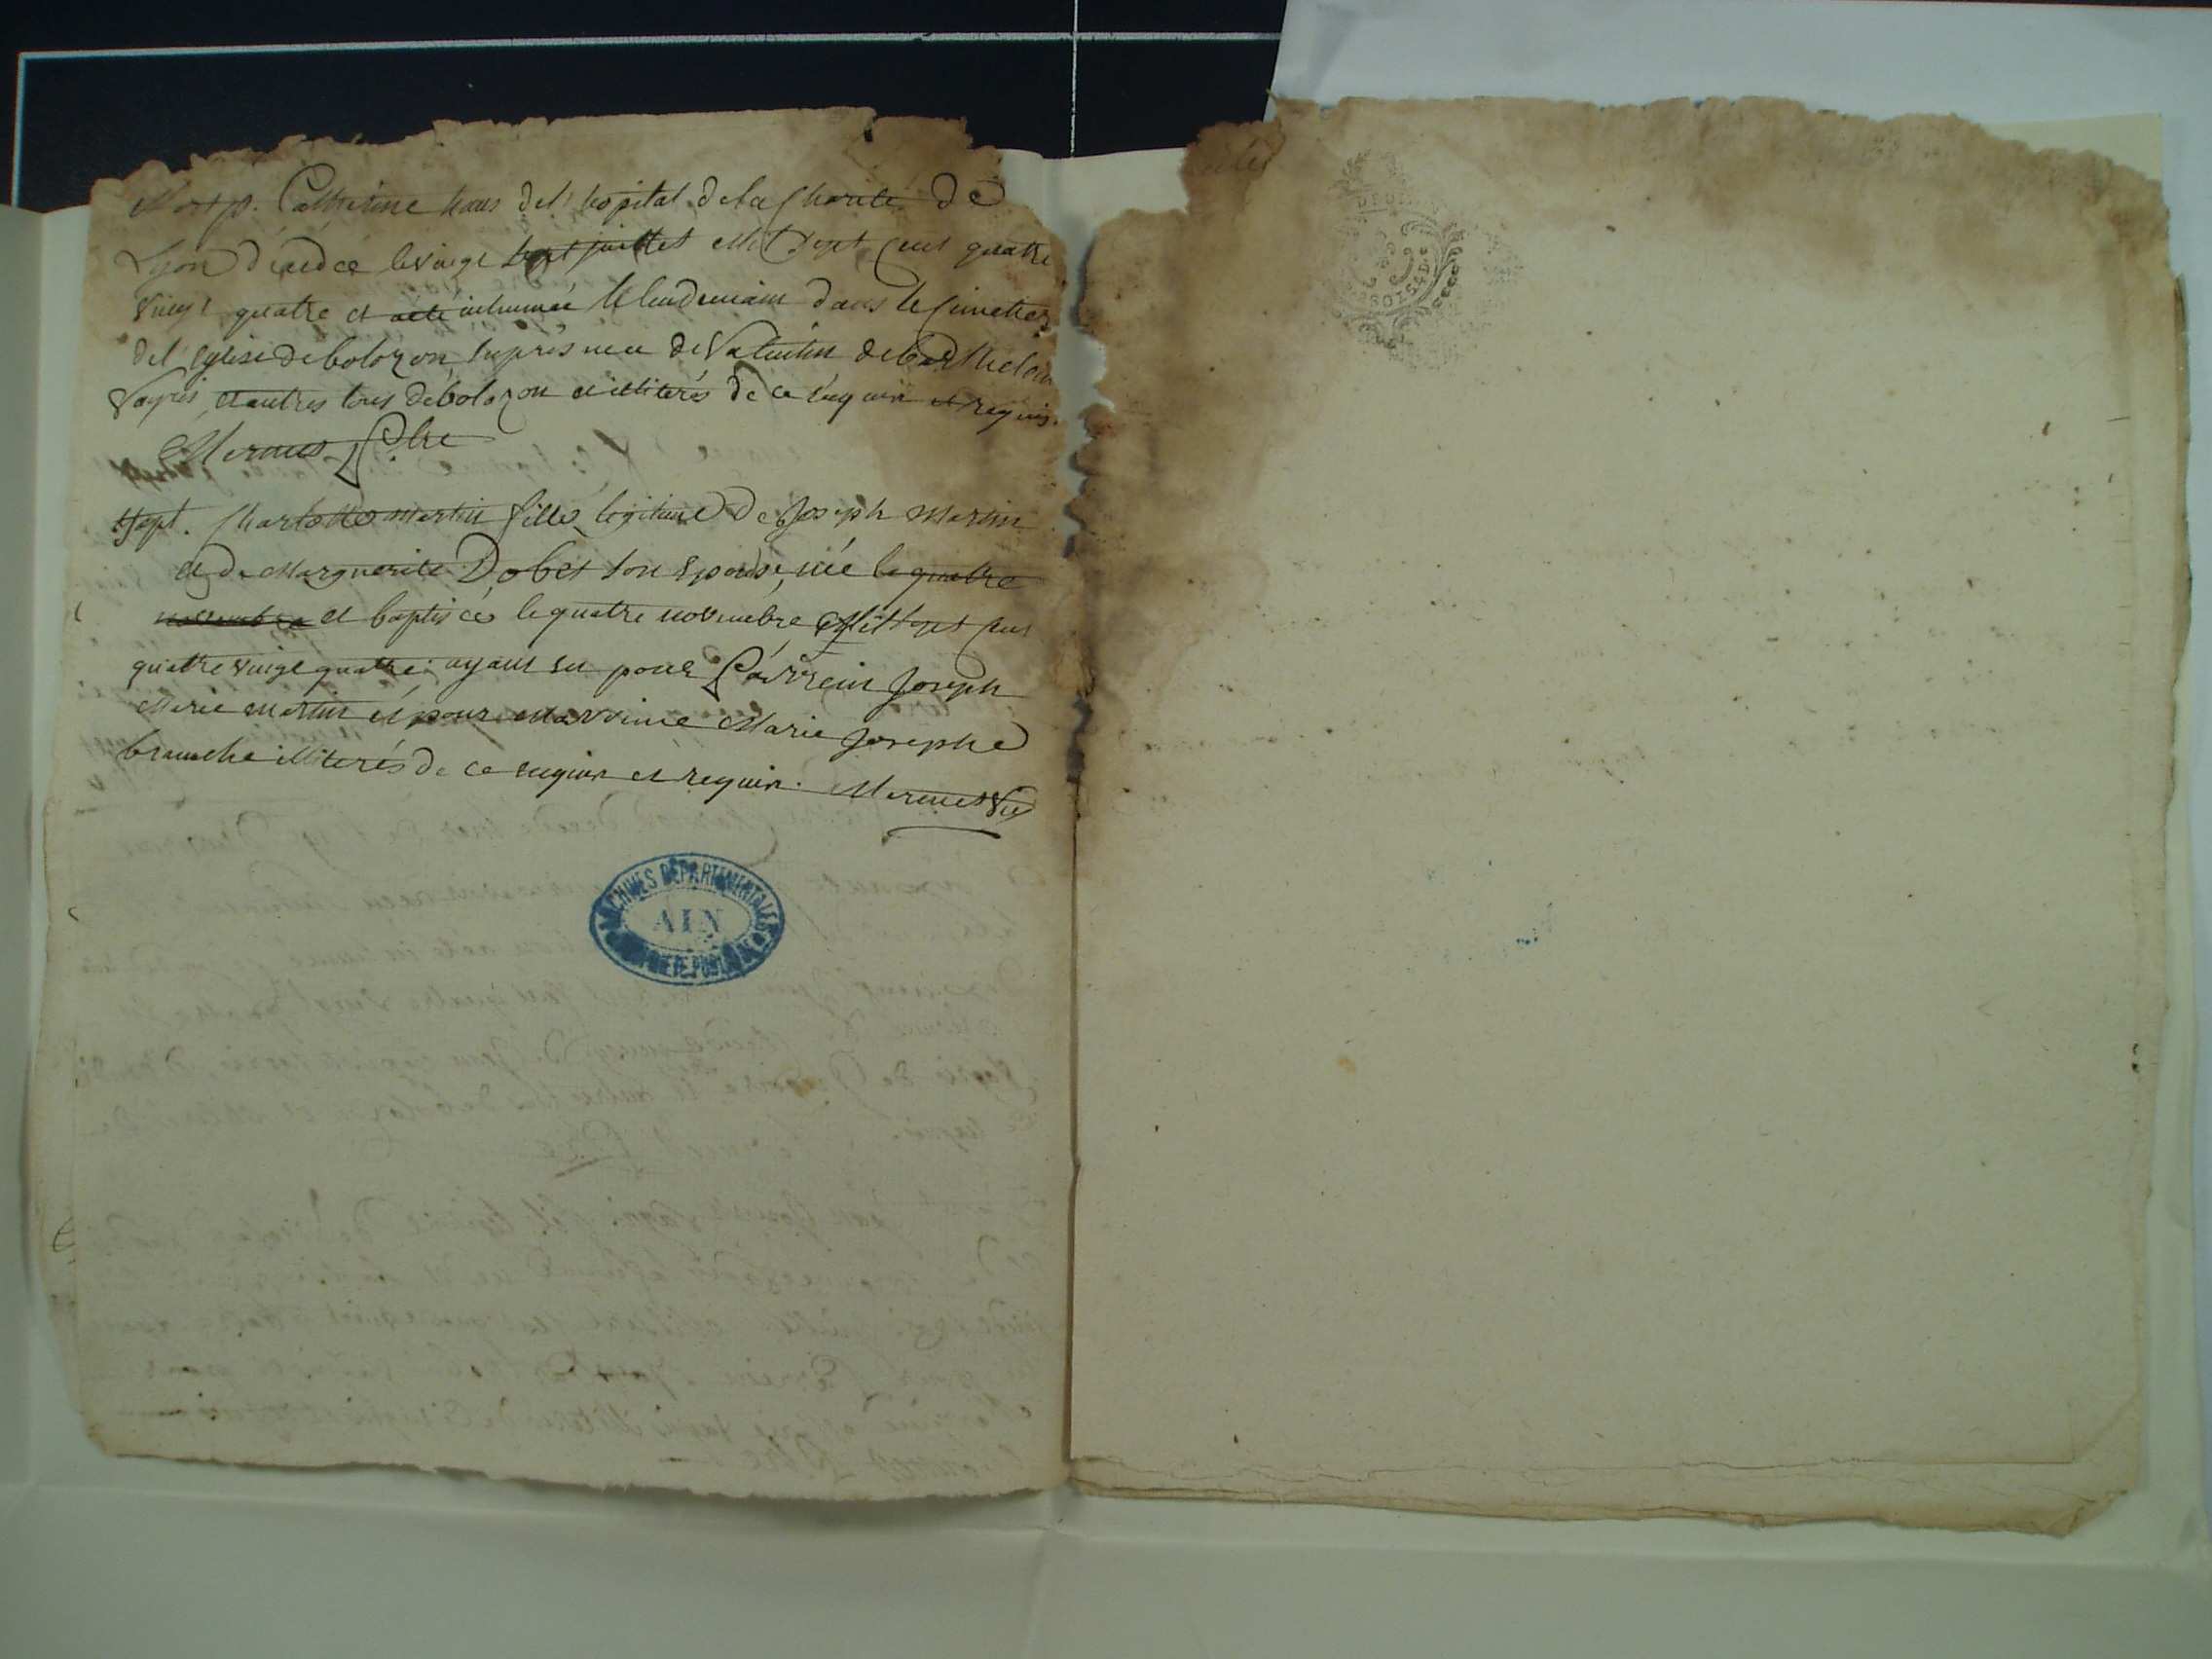 Mort p. Catherine hans del' hopital de la Charité de
Lyon décédée le vingt sept juillet Mil sept cent quatre
vingt quatre et a été inhumée le lendemain dans le cimetier
del' Eglise de bolozon, en présence de Valentin de Barthelem
vayres et autres tous de bolozon et illiterés de ce enquis et requis.
Mermet Ptre
Bapt. Charlotte Martin fille légitime de Joseph Martin
et de Marguerite Dobet son épouse, née le quatre
novembre et baptisée le quatre novembre Mil sept cent
quatre vingt quatre: ayant eu pour Parrein Joseph
Marie Martin et pour Marraine Marie Josephe
branche illiterés de ce enquis et requis. Mermet Vic
ARCHIVES DÉPARTEMENTALES
AIN